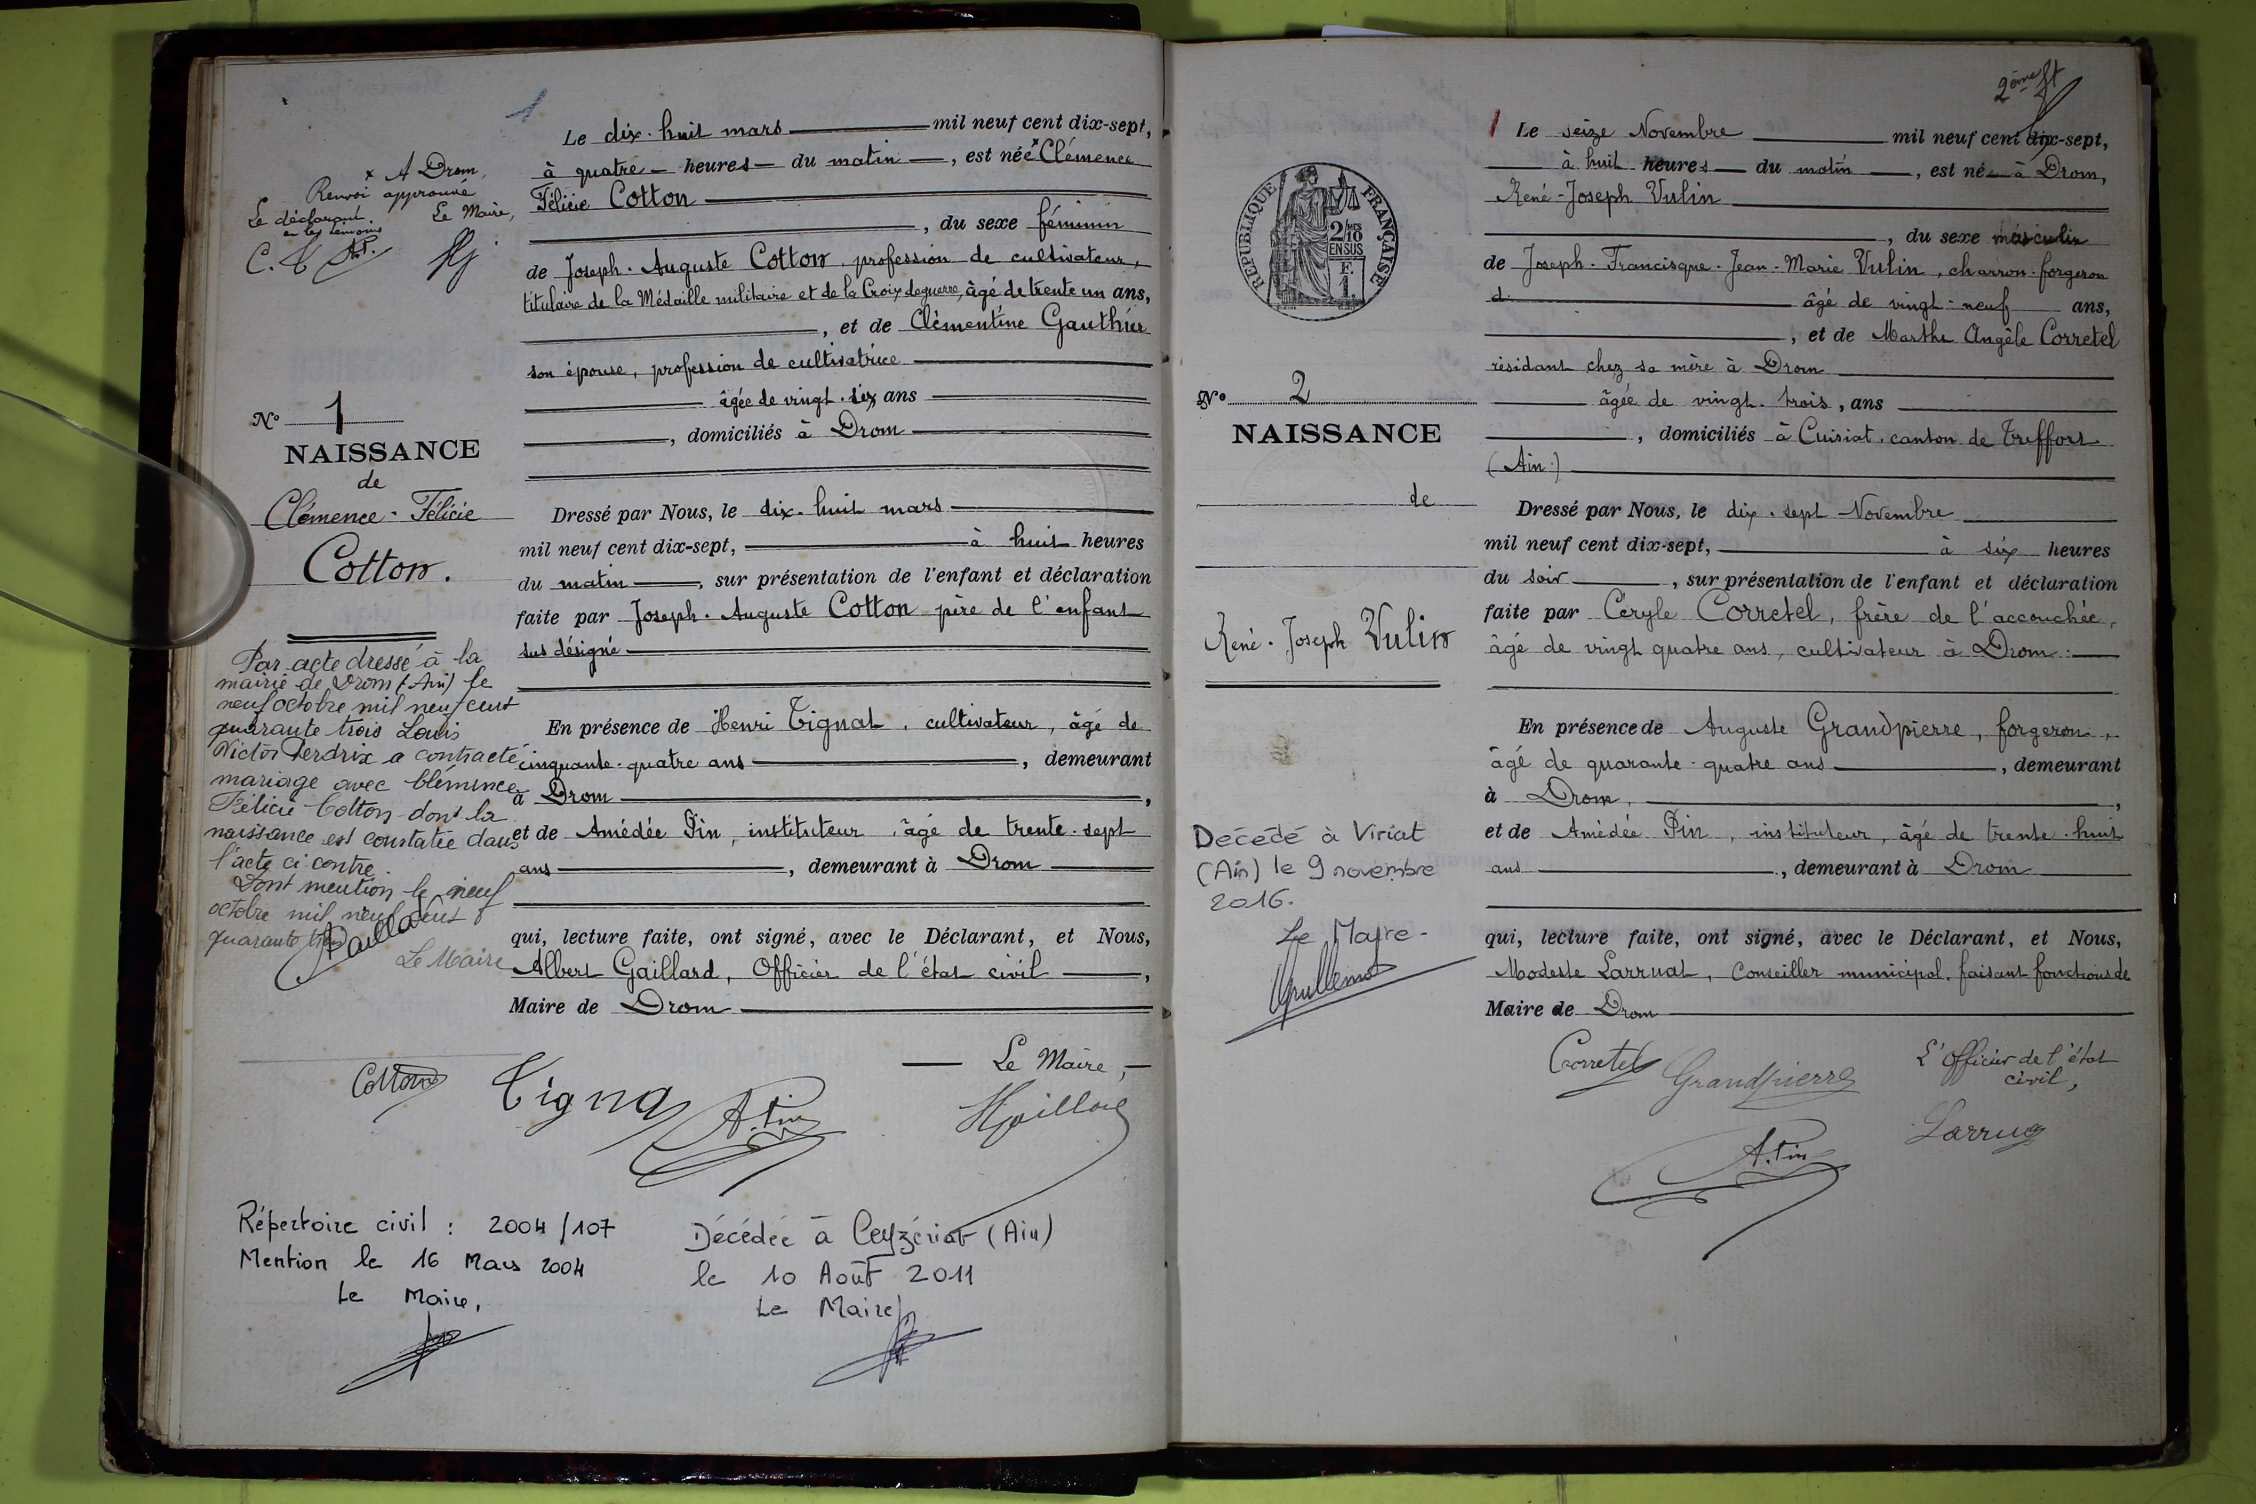 1
Le dix-huit mars mil neuf cent dix-sept,
à quatre heures du matin, est née x Clémence
Félicie Cotton
, du sexe féminin
de Joseph-Auguste Cotton, profession de cultivateur,
titulaire de la Médaille militaire et de la Croix de guerre, âgé de trente un ans,
, et de Clémentine Gauthier
son épouse, profession de cultivatrice
âgée de vingt-six ans
, domiciliés à Drom
Dressé par Nous, le dix-huit mars
mil neuf cent dix-sept, à huit heures
du matin, sur présentation de l'enfant et déclaration
faite par Joseph-Auguste Cotton père de l'enfant
sus désigné
En présence de Henri Tignat, cultivateur, âgé de
cinquante-quatre ans, demeurant
à Drom,
et de Amédée Pin, instituteur, âgé de trente-sept
ans, demeurant à Drom
qui, lecture faite, ont signé, avec le Déclarant, et Nous,
Albert Gaillard, Officier de l'état civil,
Maire de Drom
Le Maire,
Cotton
Tignat
A. Pin
x A Drom,
Renvoi approuvé
Le déclarant, Le Maire,
et les témoins
C. T A.P.
N° 1
NAISSANCE
de
Clémence-Félicie
Cotton.
Par acte dressé à la
mairie de Drom (Ain) le
neuf octobre mil neuf cent
quarante trois Louis
Victor Perdrix a contracté
mariage avec Clémence
Félicie Cotton dont la
naissance est constatée dans
l'acte ci contre.
Dont mention le neuf
octobre mil neuf cent
quarante trois
Le Maire
Répertoire civil : 2004/107
Mention le 16 Mars 2004
Le Maire,
Décédée à Ceyzériat (Ain)
le 10 Août 2011
Le Maire
2ème
Le seize Novembre mil neuf cent dix-sept,
à huit heures du matin, est né à Drom,
René-Joseph Vulin
, du sexe masculin
de Joseph-Francisque-Jean-Marie Vulin, charron-forgeron
d. âgé de vingt-neuf ans,
, et de Marthe Angèle Corretel
résidant chez sa mère à Drom
âgée de vingt-trois, ans
, domiciliés à Cuisiat, canton de Treffort
(Ain)
Dressé par Nous, le dix-sept Novembre
mil neuf cent dix-sept, à six heures
du soir, sur présentation de l'enfant et déclaration
faite par Céryle Corretel, frère de l'accouchée,
âgé de vingt quatre ans, cultivateur à Drom.
En présence de Auguste Grandpierre, forgeron,
âgé de quarante-quatre ans, demeurant
à Drom,
et de Amédée Pin, instituteur, âgé de trente-huit
ans, demeurant à Drom
qui, lecture faite, ont signé, avec le Déclarant, et Nous,
Modeste Larruat, Conseiller municipal, faisant fonctions de
Maire de Drom
Corretel
Grandpierre
L'Officier de l'état
civil,
A. Pin
RÉPUBLIQUE FRANÇAISE
2/10 MES
EN SUS
F.
1.
N° 2
NAISSANCE
de
René-Joseph Vulin
Décédé à Viriat
(Ain) le 9 novembre
2016.
Le Maire-